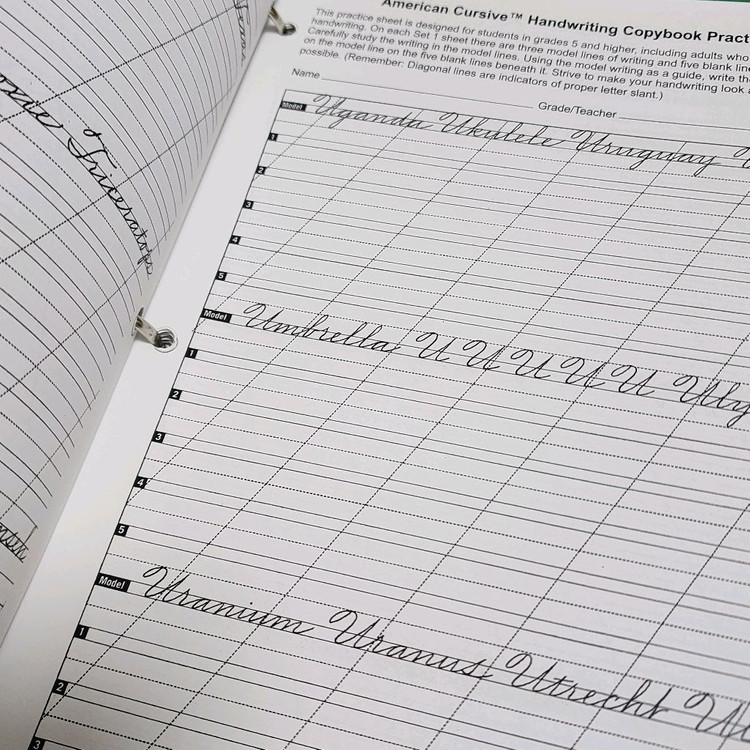 Triceratops
American Cursive™ Handwriting Copybook
This practice sheet is designed for students in grades 5 and higher, including adults who
handwriting. On each Set 1 sheet there are three model lines of writing and five blank
Carefully study the writing in the model lines. Using the model writing as a guide, write
on the model line on the five blank lines beneath it. Strive to make your handwriting look
possible. (Remember: Diagonal lines are indicators of proper letter slant.)
Name Grade/Teacher
Model Uganda Ukulele Uruguay
1
2
3
4
5
Model Umbrella U U U U U
1
2
3
4
5
Model Uranium Uranus Utrecht
1
2
3